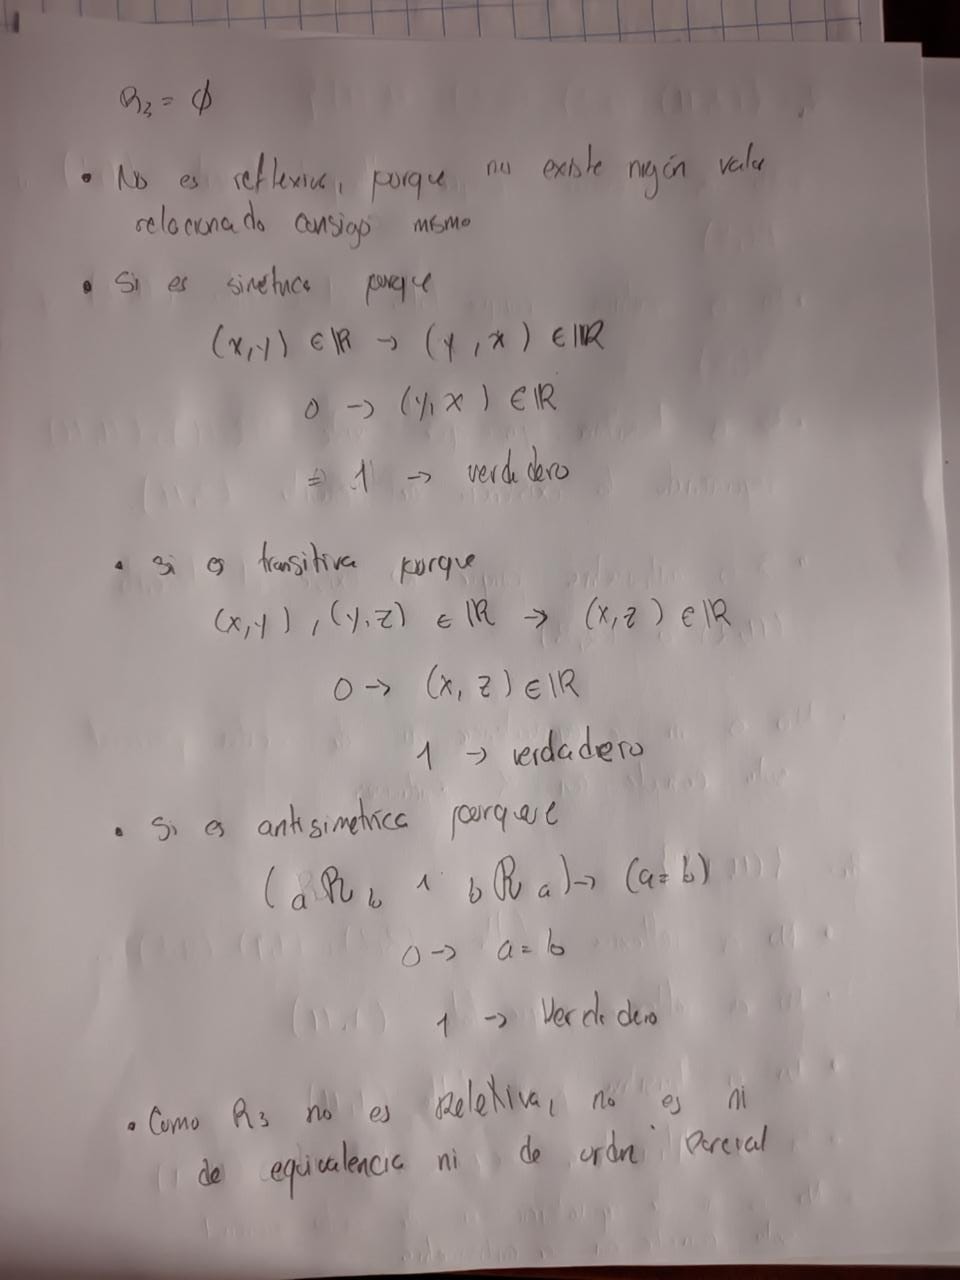 R₃ = ∅
• No es reflexiva, porque no existe nigún valor
relacionado consigo mismo
• Si es simetrica porque
(x,y) ∈ ℝ → (y,x) ∈ ℝ
0 → (y,x) ∈ ℝ
= 1 → verdadero
• Si es transitiva porque
(x,y), (y,z) ∈ ℝ → (x,z) ∈ ℝ
0 → (x,z) ∈ ℝ
1 → verdadero
• Si es antisimetrica porque
(aRb ∧ bRa) → (a=b)
0 → a=b
1 → Verdadero
• Como R₃ no es Relexiva, no es ni
de equivalencia ni de orden parcial